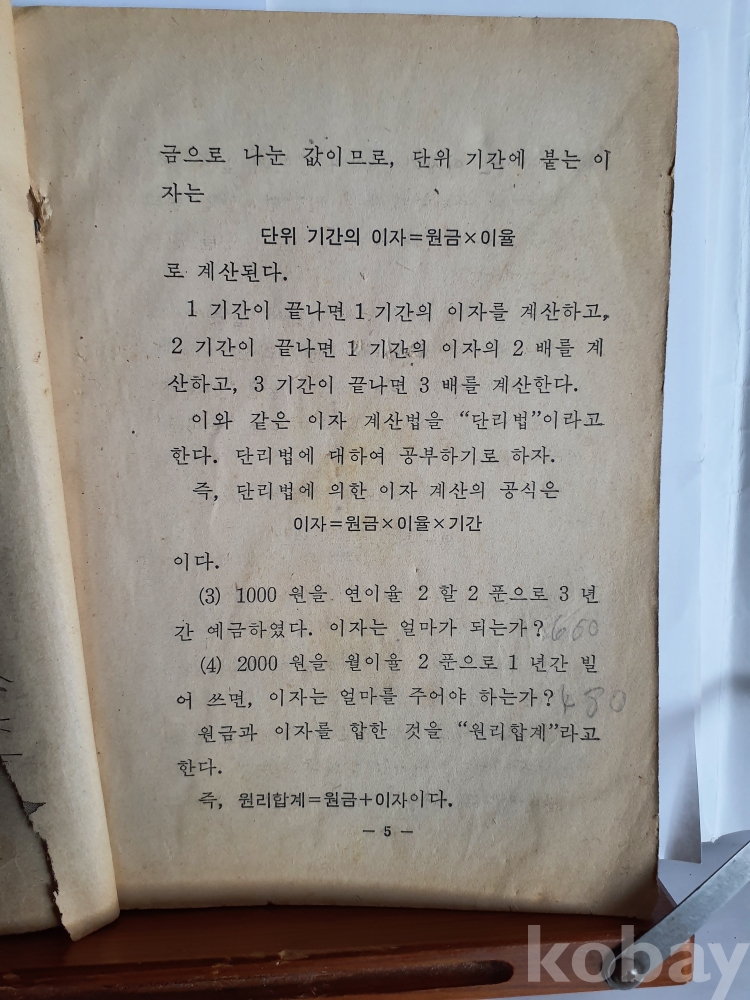 금으로 나눈 값이므로, 단위 기간에 붙는 이
자는
단위 기간의 이자=원금×이율
로 계산된다.
1 기간이 끝나면 1 기간의 이자를 계산하고,
2 기간이 끝나면 1 기간의 이자의 2 배를 계
산하고, 3 기간이 끝나면 3 배를 계산한다.
이와 같은 이자 계산법을 “단리법”이라고
한다. 단리법에 대하여 공부하기로 하자.
즉, 단리법에 의한 이자 계산의 공식은
이자=원금×이율×기간
이다.
(3) 1000 원을 연이율 2 할 2 푼으로 3 년
간 예금하였다. 이자는 얼마가 되는가? 660
(4) 2000 원을 월이율 2 푼으로 1 년간 빌
어 쓰면, 이자는 얼마를 주어야 하는가? 480
원금과 이자를 합한 것을 “원리합계”라고
한다.
즉, 원리합계=원금+이자이다.
— 5 —
kobay